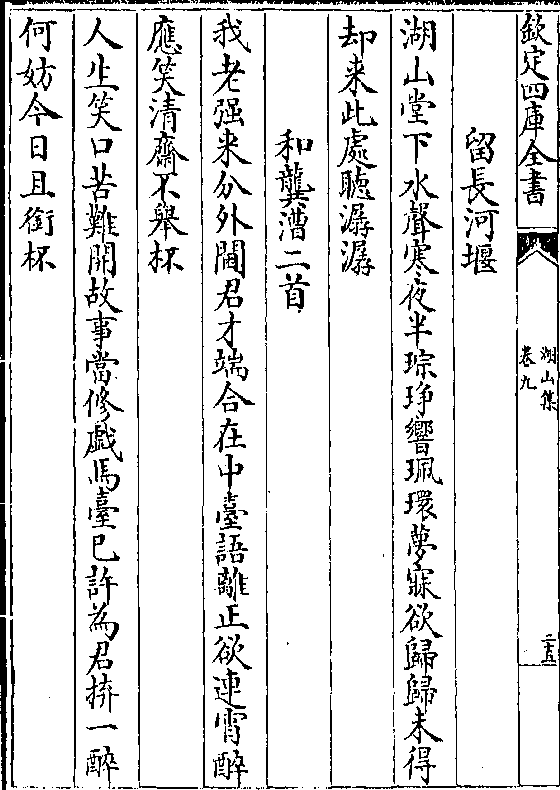 欽定四庫全書
湖山集
卷九
二十五
留長河堰
湖山堂下水聲寒夜半琮琤響珮環夢寐欲歸歸未得
却来此處聴潺潺
和龔漕二首
我老强来分外閫君才端合在中臺語離正欲連宵醉
應笑清齋不舉杯
人生笑口苦難開故事當修戯馬臺已許為君拚一醉
何妨今日且銜杯